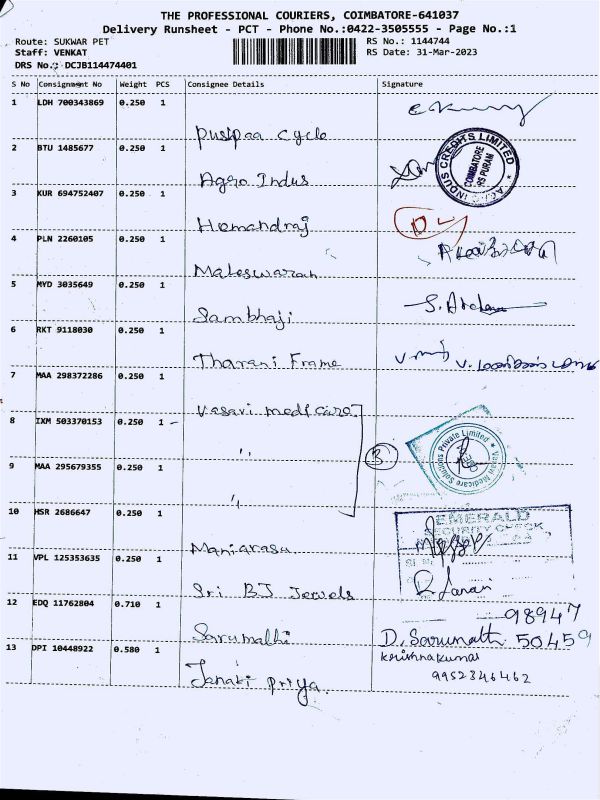 THE PROFESSIONAL COURIERS, COIMBATORE-641037
Delivery Runsheet - PCT - Phone No.:0422-3505555 - Page No.:1
Route: SUKWAR PET
Staff: VENKAT
DRS No.: DCJB114474401
RS No.: 1144744
RS Date: 31-Mar-2023
S No Consignment No Weight PCS Consignee Details Signature
1 LDH 700343869 0.250 1
Puspaa cycle
2 BTU 1485677 0.250 1
Agro Indus
INDUS CREDITS LIMITED
COIMBATORE
RS PURAM
3 KUR 694752407 0.250 1
Hemandraj
4 PLN 2260105 0.250 1
Maleswaran
5 MYD 3035649 0.250 1
Sambhaji
6 RKT 9118030 0.250 1
Tharani Frame
7 MAA 298372286 0.250 1
Vasavi medicare
8 IXM 503370153 0.250 1 -
"
3
Vasavi Medicare Solutions Private Limited
9 MAA 295679355 0.250 1
"
10 HSR 2686647 0.250 1
Maniarasu
EMERALD
SECURITY CHECK
11 VPL 125353635 0.250 1
Sri BJ Jewels
12 EDQ 11762804 0.710 1
Sarumathi
98947
D. Sarumathi 50459
13 DPI 10448922 0.580 1
Janaki priya
krishnakumar
9952346462